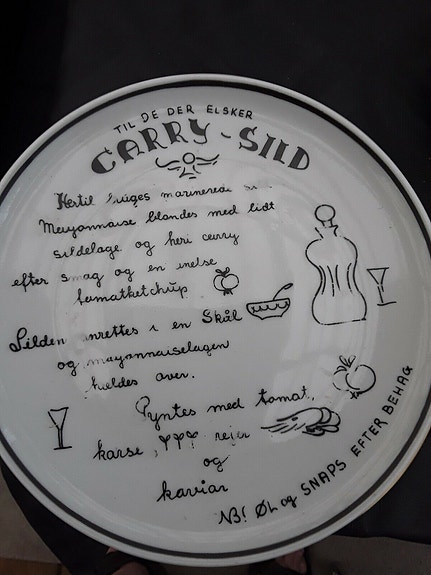 TIL DE DER ELSKER
CARRY-SILD
Hertil bruges marinerede
Meuyonnaise blandes med lidt
sildelage og heri curry
efter smag og en anelse
tomatketchup
Silden anrettes i en Skål
og mayonnaiselagen
hældes over.
Pyntes med tomat,
karse, rejer
og
kaviar
NB! ØL og SNAPS EFTER BEHAG